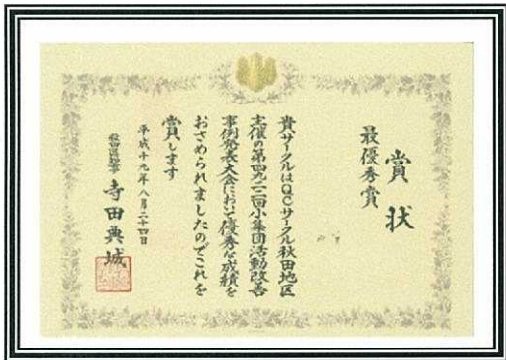 賞状
最優秀賞
貴サークルはQCサークル秋田地区
主催の第四九二二回小集団活動改善
事例発表大会において優秀な成績を
おさめられましたのでこれを
賞します
平成十九年八月二十四日
秋田県知事 寺田典城